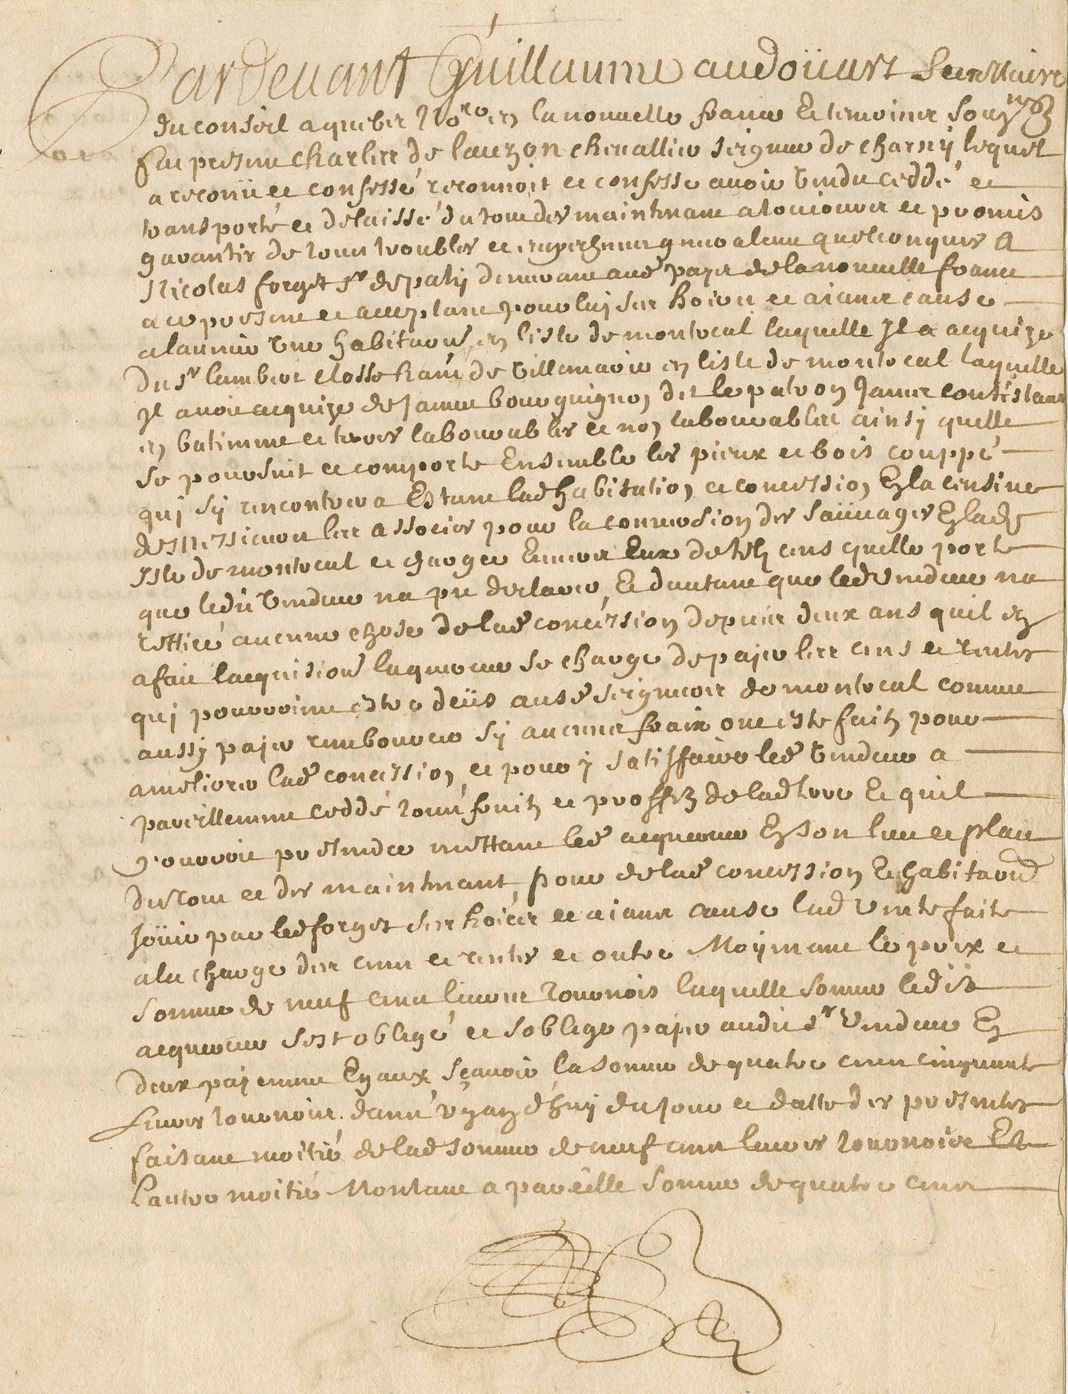 Pardevant Guillaume audoüart Secrettaire
du conseil a quebec No.re en la nouvelle france Et temoins Sousnez
fut present charles de lauzon chevallier seigneur de charny lequel
a reconnu et confessé reconnoit et confesse avoir vendu ceddé et
transporté et delaissé du tout des maintenant a toujours et promis
garantir de tous troubles et empeschemens generalement quelconques A
Nicolas forget Sr despatiz demeurant aud. pays de la nouvelle france
a ce present et acceptant pour luy ses hoirs et aians cause
a lauenir Une habitaon en lisle de montreal laquelle Jl a acquize
du Sr lambert closse habt de villemarie en lisle de montreal laquelle
Jl avoit acquize de Jamme bourguignon dit le patron Jamme consistant
en batimens et terres labourables et non labourables ainsy quelle
se poursuit et comporte Ensemble les pieux et bois couppé
quj sy rencontrera Estant lad habitation et concession En la censive
de Messieurs les associes pour la conversion des Sauuages En lad.
Isle de montreal et chargee Envers Eux de telz cens quelle porte
que ledit vendeur na peu declarer, Et dautant que led vendeur na
rettiré aucune chose de lad concession depuis deux ans quil en
a fait lacquisition lacquereur se charge de payer les cens et rentes
quj pourroient estre deüs ausd seigneurs de montreal comme
aussy payer rembourcer sy aucuns fraix ont esté faitz pour
ameliorer lad concession, et pour y satisffaire led vendeur a
pareillement ceddé tous fruitz et proffitz de lad terre Et quil
y pourroit pretendre mettant led acquereur En son lieu et place
du tout et des maintenant, pour de lad concession Et habitaon
Joüir par led forget ses hoirs et aians cause lad vente faite
a la charge des cens et rentes et outre Moyennant le prix et
somme de neuf cens liures tournois laquelle somme ledit
acquereur sest obligé et soblige payer audit Sr vendeur En
deux payemens Egaux sçavoir la somme de quatre cens cinquante
Livres tournois dans un an dhuy du jour et datte des presentes
faisant moitié de lad somme de neuf cens livres tournois Et
Lautre moitié Montant a pareille somme de quatre cens